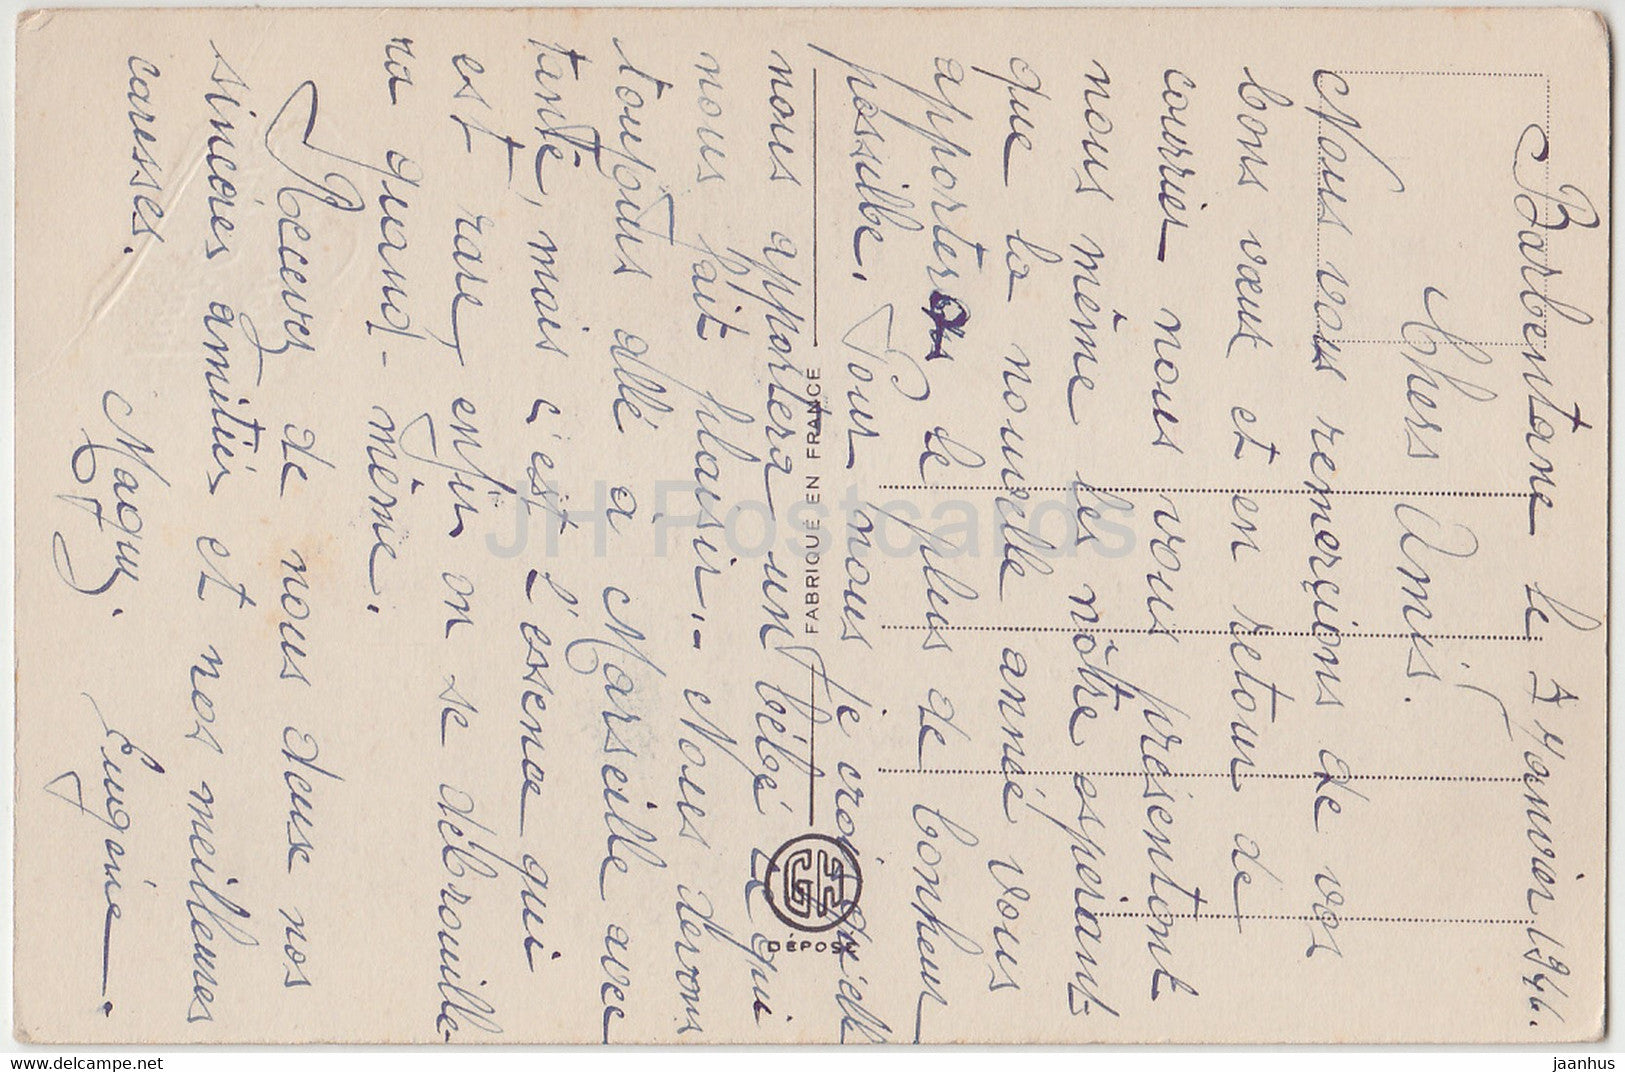 Barbentane le 7 Janvier 1946.
Chers Amis.
Nous vous remerçions de vos
bons vœux et en retour de
courrier nous vous présentont
nous même les nôtre espérant
que la nouvelle année vous
apporteras le plus de bonheur
possible. Pour nous je crois qu'elle
nous apportera un bébé ce qui
nous fait plaisir.- Nous devons
toujours allé à Marseille avec
tante, mais c'est l'essence qui
est rare, enfin on se débrouille-
ra quand-même.
Recevez de nous deux nos
sincères amitiés et nos meilleures
caresses.
Maguy. Eugène.
FABRIQUÉ EN FRANCE
DÉPOSÉ
JH Postcards
hippostcard.com/store/jhpostcards
jaanhus